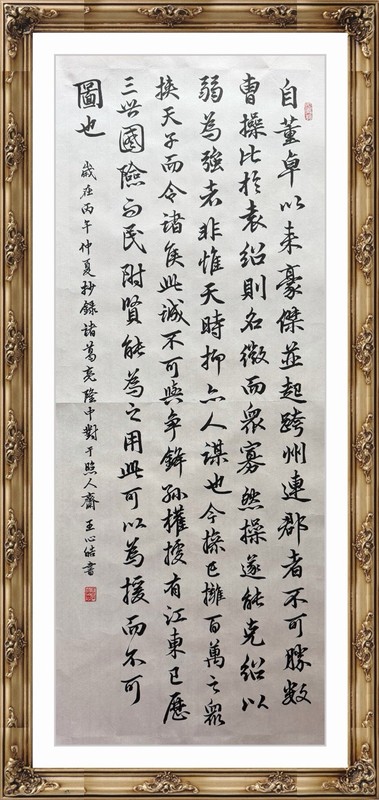 自董卓以来豪傑並起跨州連郡者不可勝数
曹操比於袁绍則名微而衆寡然操遂能克绍以
弱為強者非惟天時抑亦人謀也今操已擁百萬之衆
挟天子而令诸侯此诚不可與争鋒孙權據有江東已歷
三世國險而民附賢能為之用此可以為援而不可
圖也
歲在丙午仲夏抄録諸葛亮隆中對于照人齋 王心書